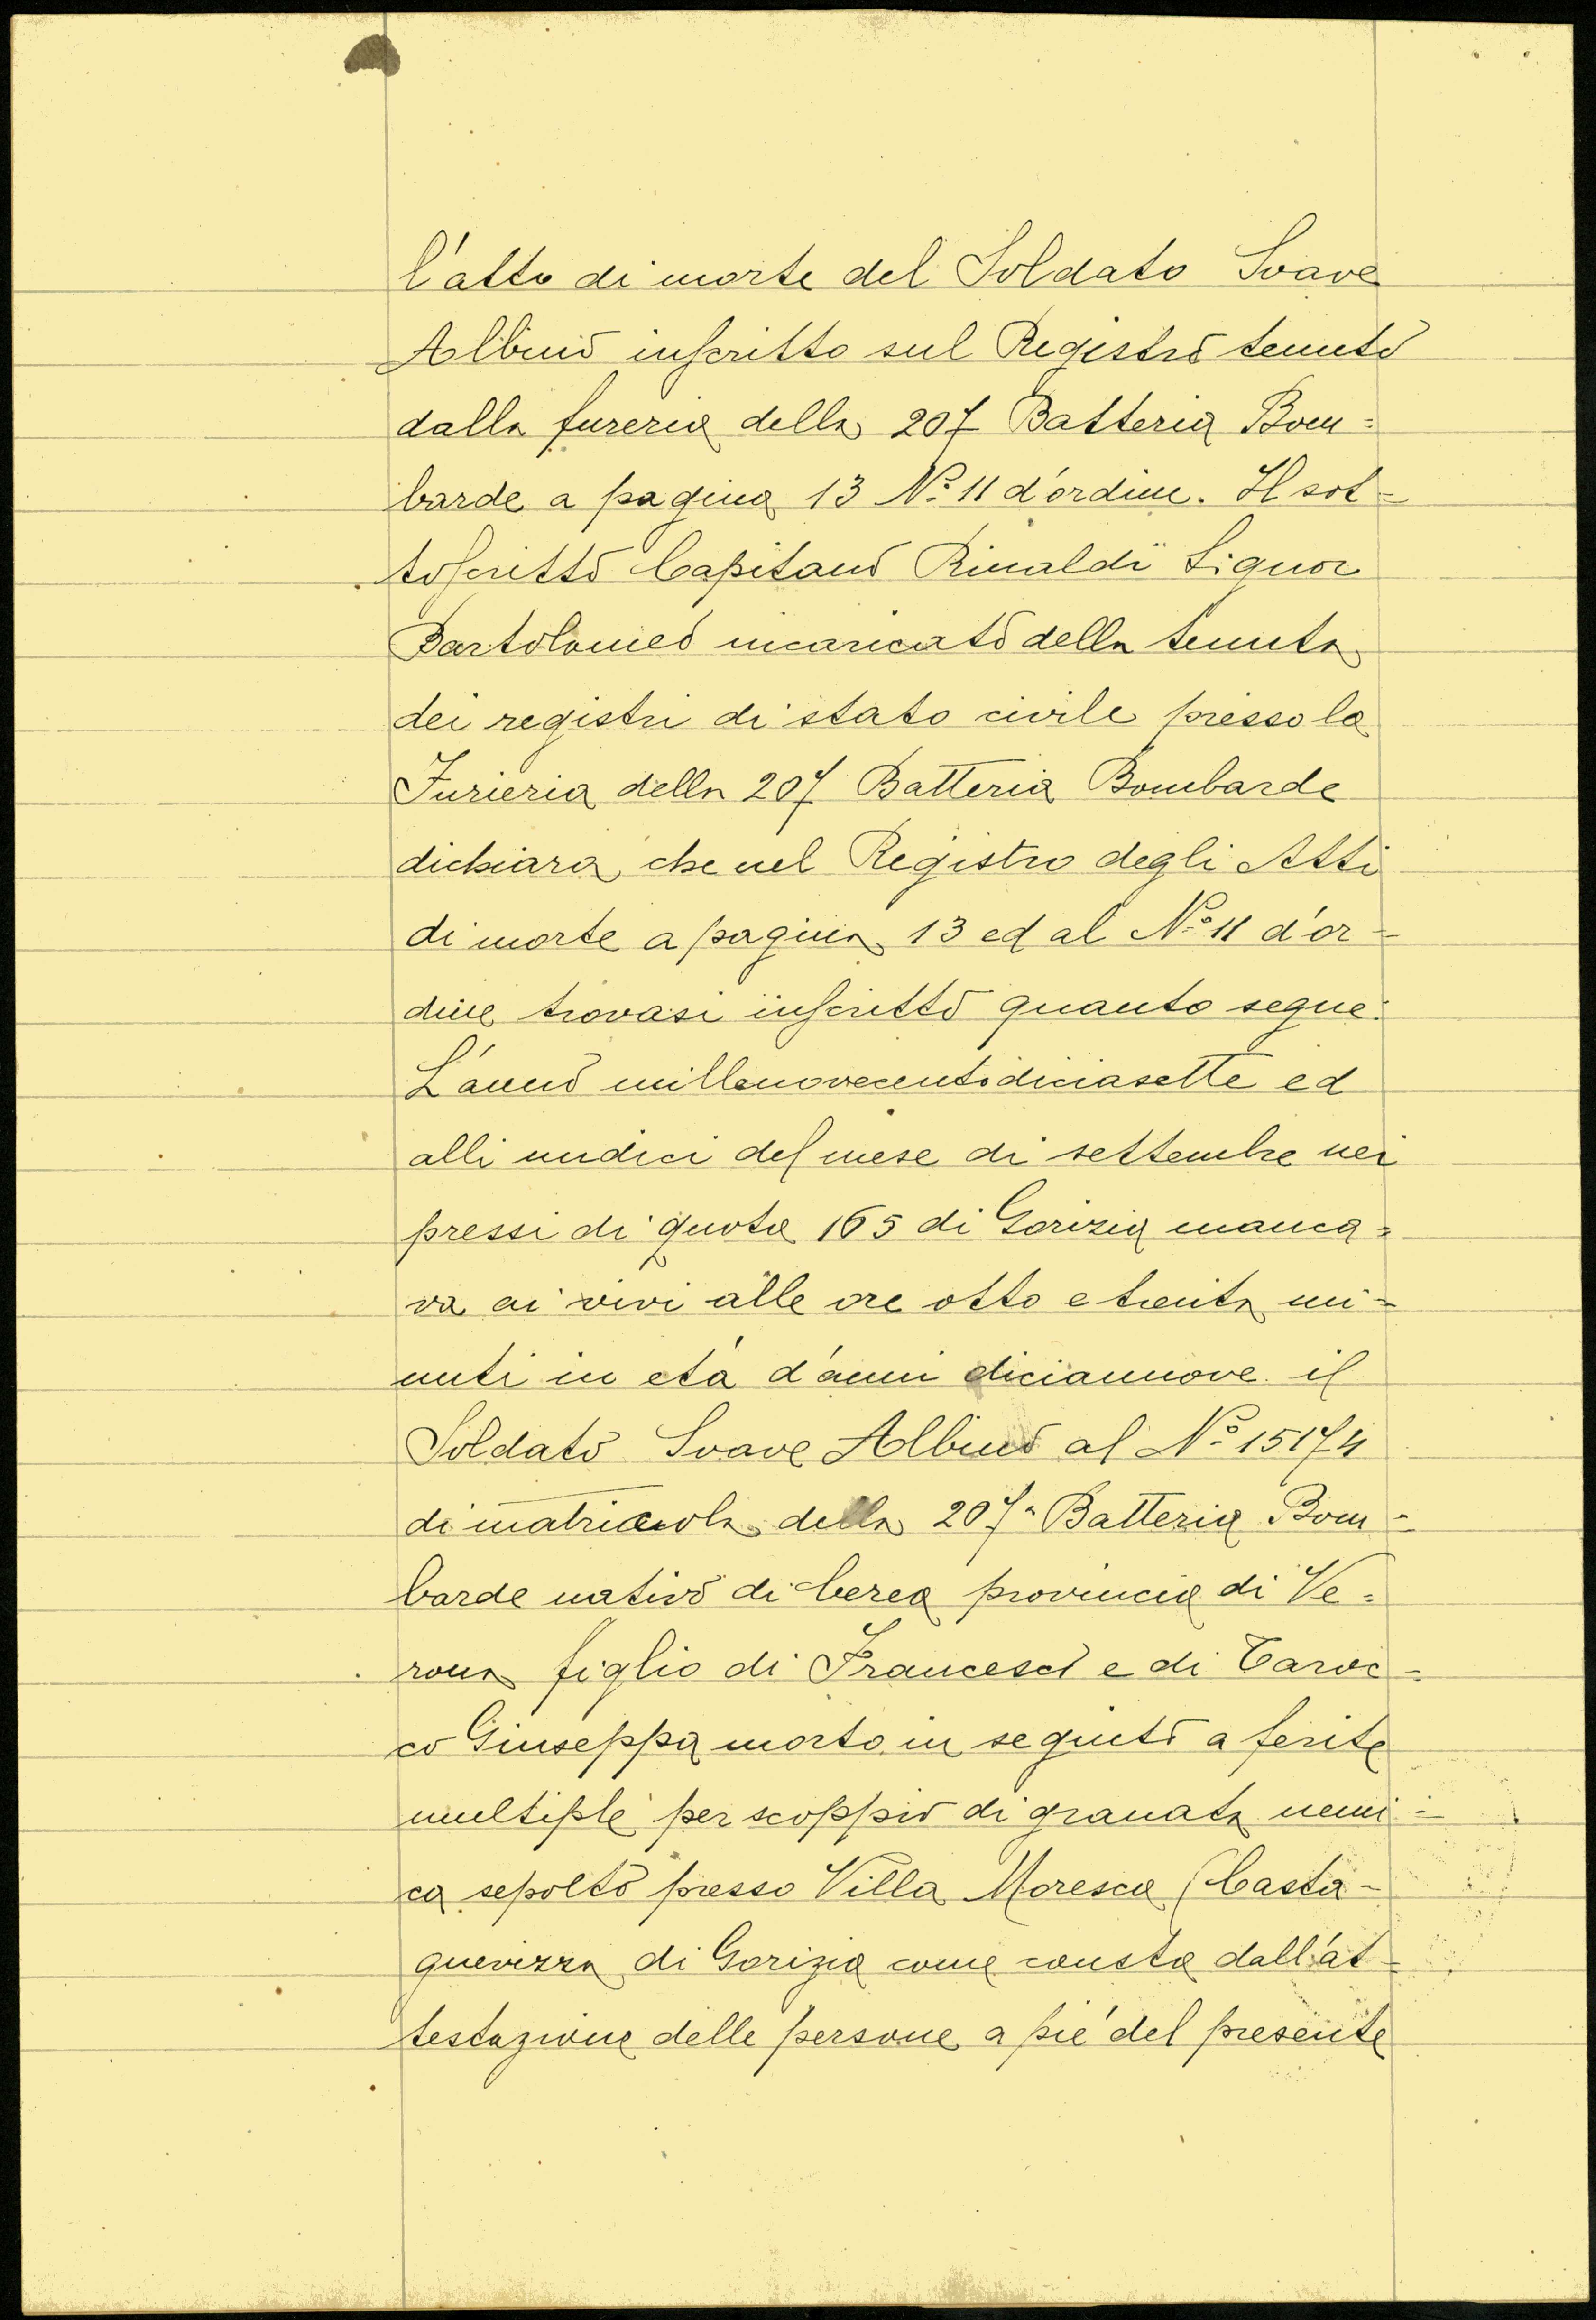 l'atto di morte del Soldato Soave
Albino inscritto sul Registro tenuto
dalla fureria della 207 Batteria Bom=
barde a pagina 13 Nº 11 d'ordine. Il sot=
toscritto Capitano Rinaldi Signor
Bartolomeo incaricato della tenuta
dei registri di stato civile presso la
Furieria della 207 Batteria Bombarde
dichiara che nel Registro degli Atti
di morte a pagina 13 ed al Nº 11 d'or=
dine trovasi inscritto quanto segue:
L'anno millenovecentodiciasette ed
alli undici del mese di settembre nei
pressi di quota 165 di Gorizia manca=
va ai vivi alle ore otto e trenta mi=
nuti in età d'anni diciannove il
Soldato Soave Albino al Nº 15174
di matricola della 207ª Batteria Bom=
barde nativo di Cerea provincia di Ve=
rona figlio di Francesco e di Taroc=
co Giuseppa morto in seguito a ferite
multiple per scoppio di granata nemi=
ca sepolto presso Villa Moresca (Casta-
gnevizza di Gorizia come consta dall'at=
testazione delle persone a pié del presente